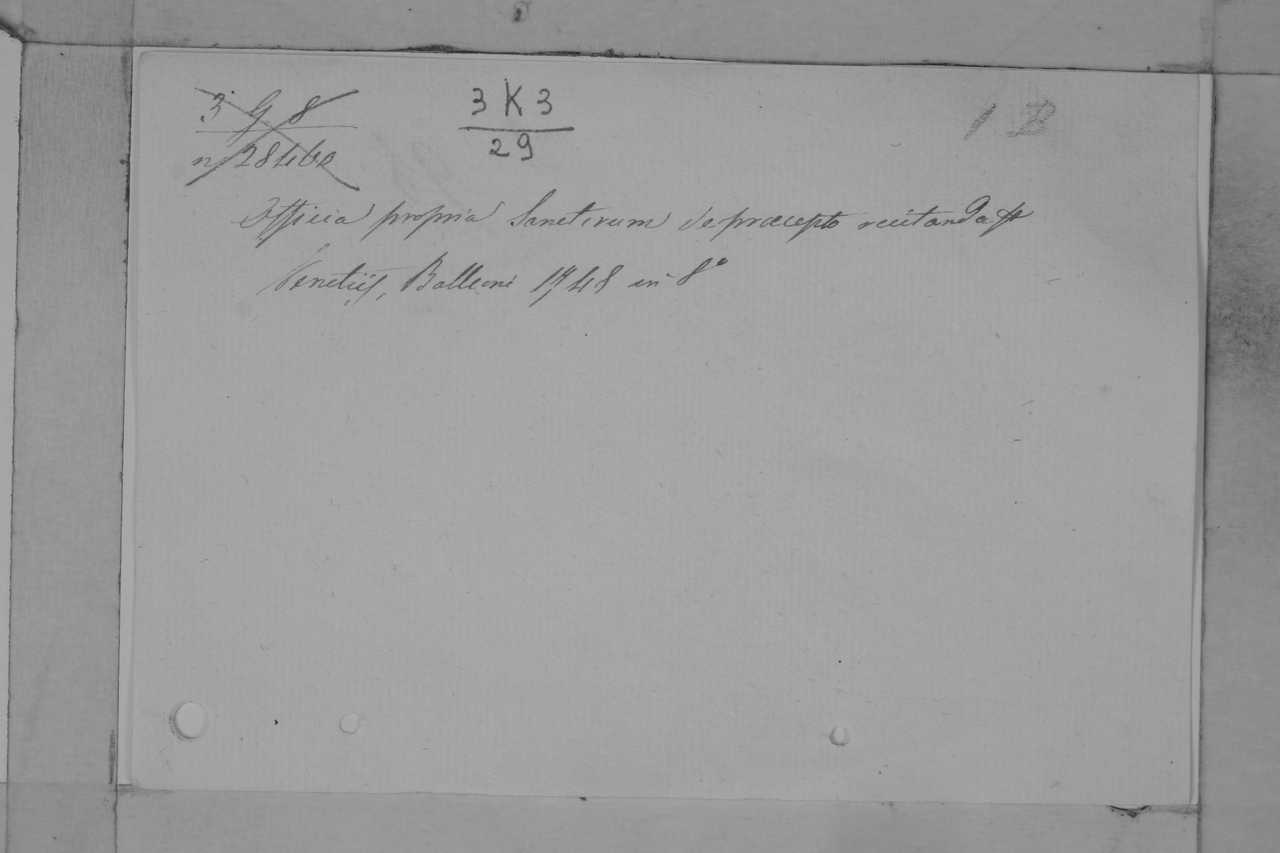 3 G 8
3 K 3
1 B
n 28460
29
Officia propria Sanctorum de præcepto recitanda
Venetiis, Balleoni 1748 in 8°